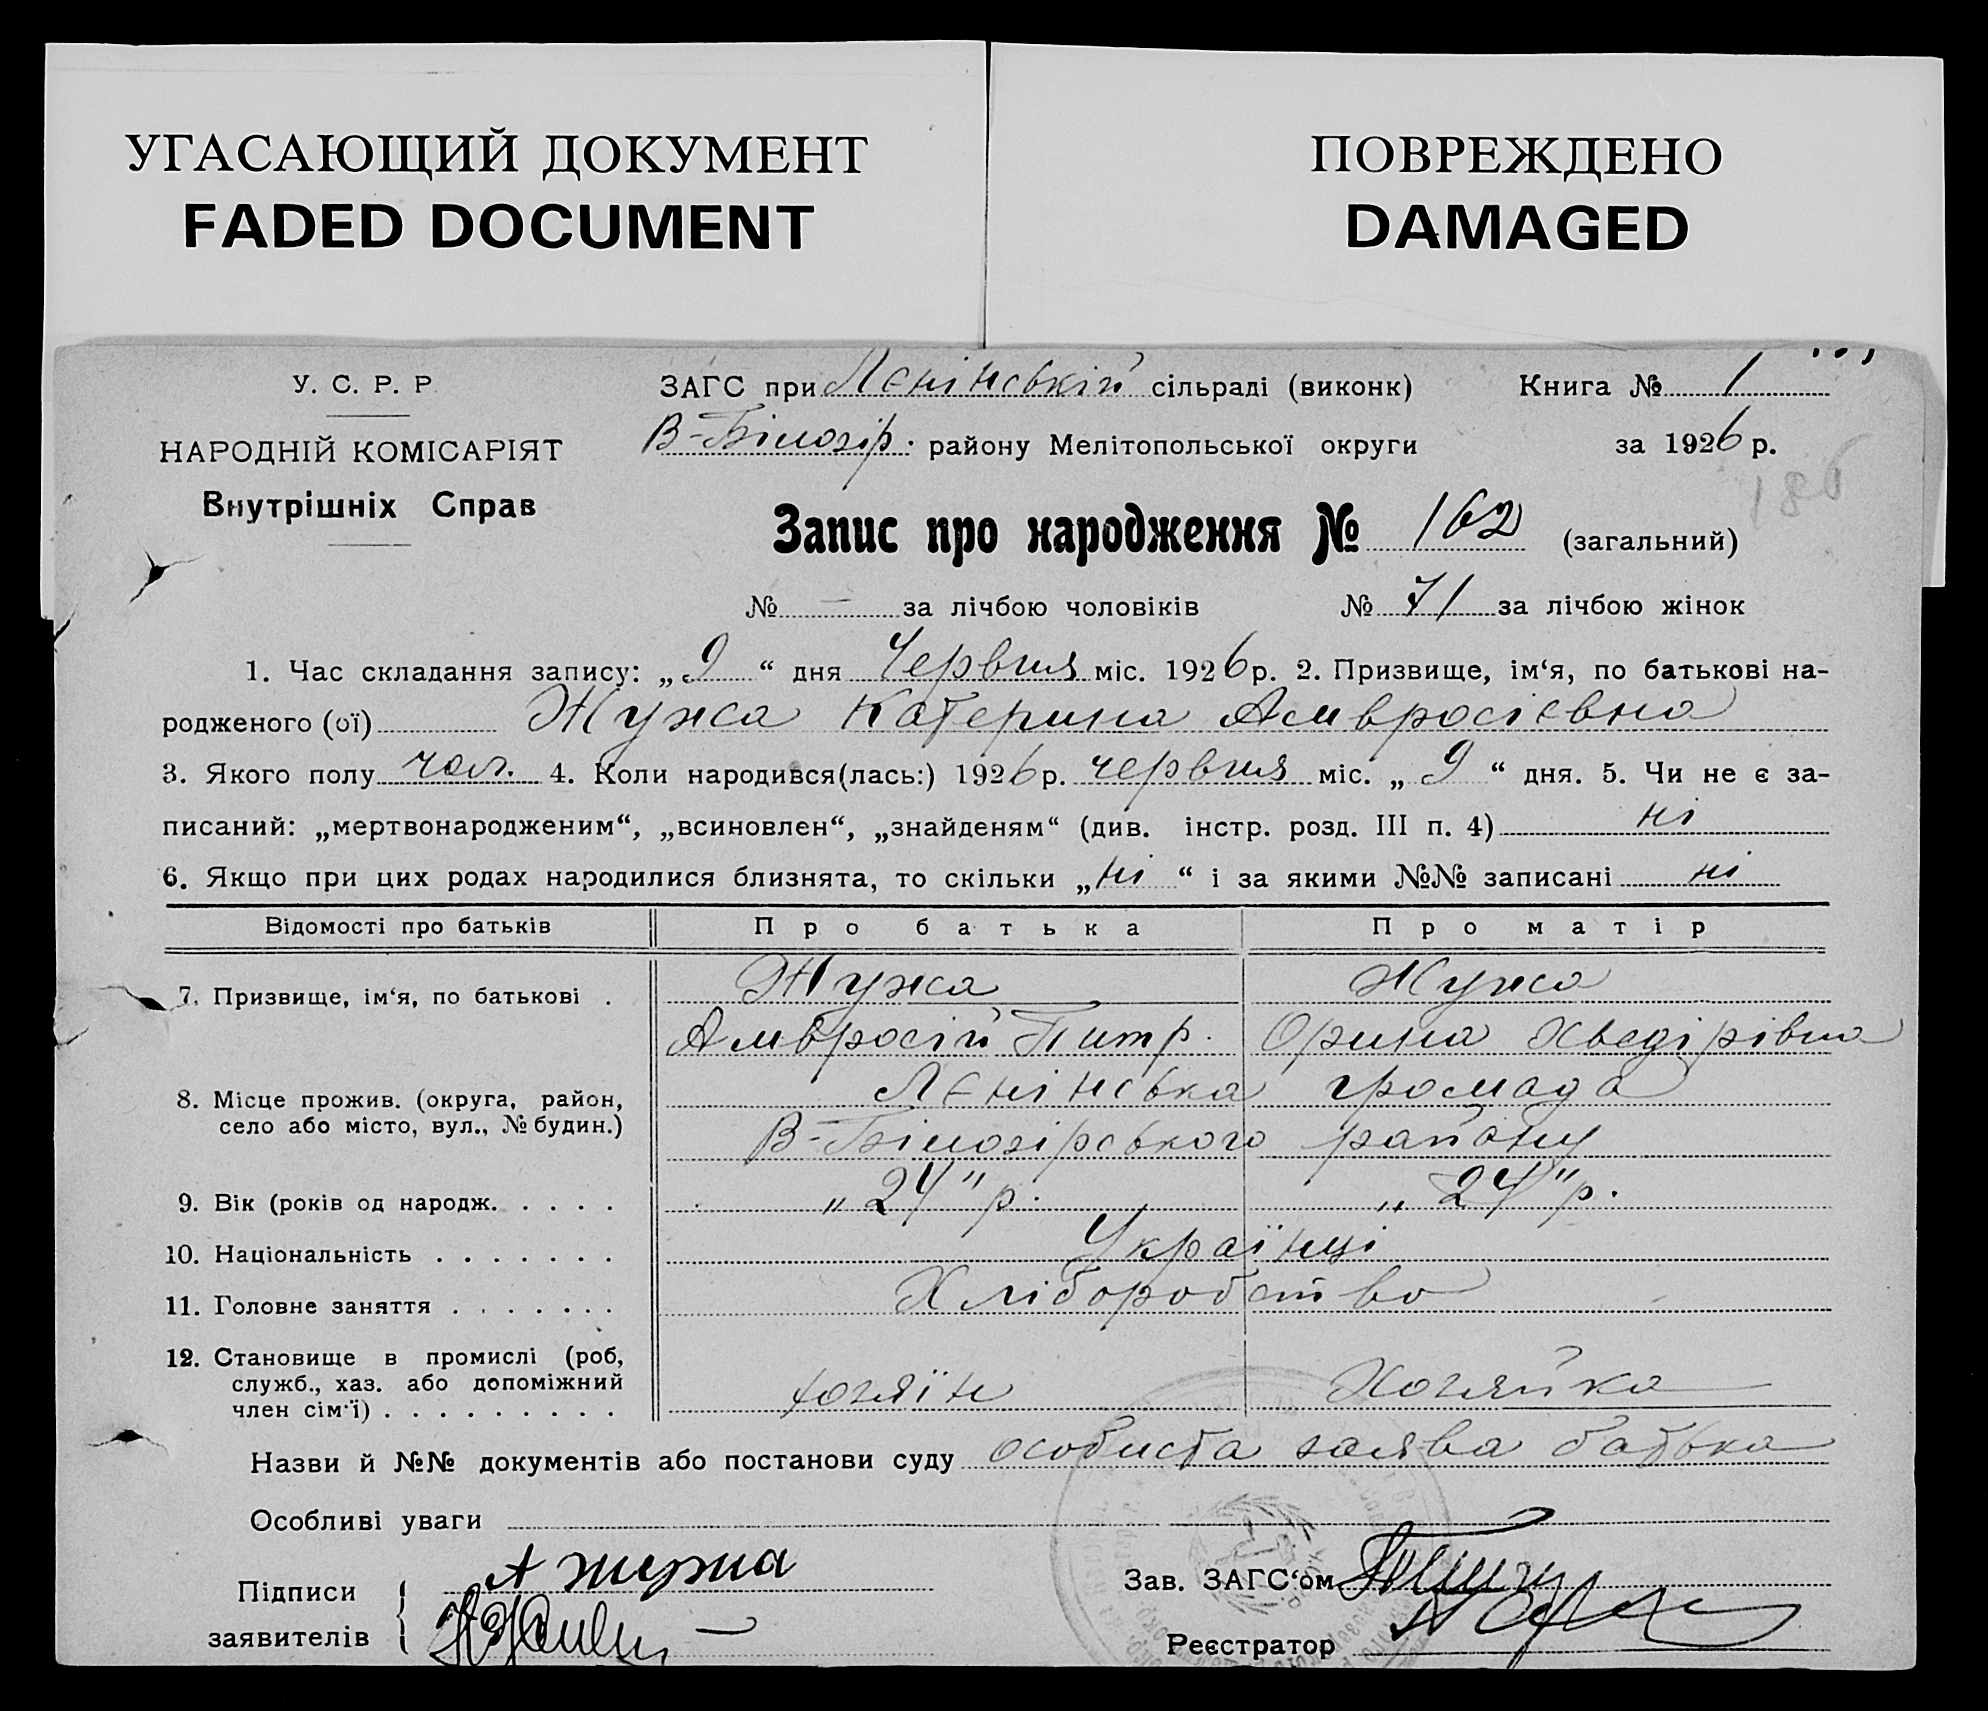 УГАСАЮЩИЙ ДОКУМЕНТ
FADED DOCUMENT
ПОВРЕЖДЕНО
DAMAGED
У. С. Р. Р
НАРОДНІЙ КОМІСАРІЯТ
Внутрішніх Справ
ЗАГС при Ленінській сільраді (виконк) Книга № 1
В-Білозір. району Мелітопольської округи за 1926 р.
186
Запис про народження № 162 (загальний)
№ — за лічбою чоловіків № 71 за лічбою жінок
1. Час складання запису: „9“ дня Червня міс. 1926 р. 2. Призвище, ім‘я, по батькові на-
родженого (ої) Жужа Катерина Амвросієвна
3. Якого полу чол. 4. Коли народився(лась:) 1926 р. червня міс. „9“ дня. 5. Чи не є за-
писаний: „мертвонародженим“, „всиновлен“, „знайденям“ (див. інстр. розд. III п. 4) ні
6. Якщо при цих родах народилися близнята, то скільки „ні“ і за якими №№ записані ні
Відомості про батьків Про батька Про матір
7. Призвище, ім‘я, по батькові . Жужа Жужа
Амвросій Питр. Орина Хведірівна
8. Місце прожив. (округа, район, Ленінська громада
село або місто, вул., № будин.) В-Білозірського району
9. Вік (років од народж. . . . . „24" р. „24" р.
10. Національність . . . . . . . Українці
11. Головне заняття . . . . . . . Хліборобство
12. Становище в промислі (роб,
служб., хаз. або допоміжний хозяїн Хозяйка
член сім‘ї) . . . . . . . . .
Назви й №№ документів або постанови суду особиста заява батька
Особливі уваги
Підписи А жужа Зав. ЗАГС‘ом
заявителів Реєстратор